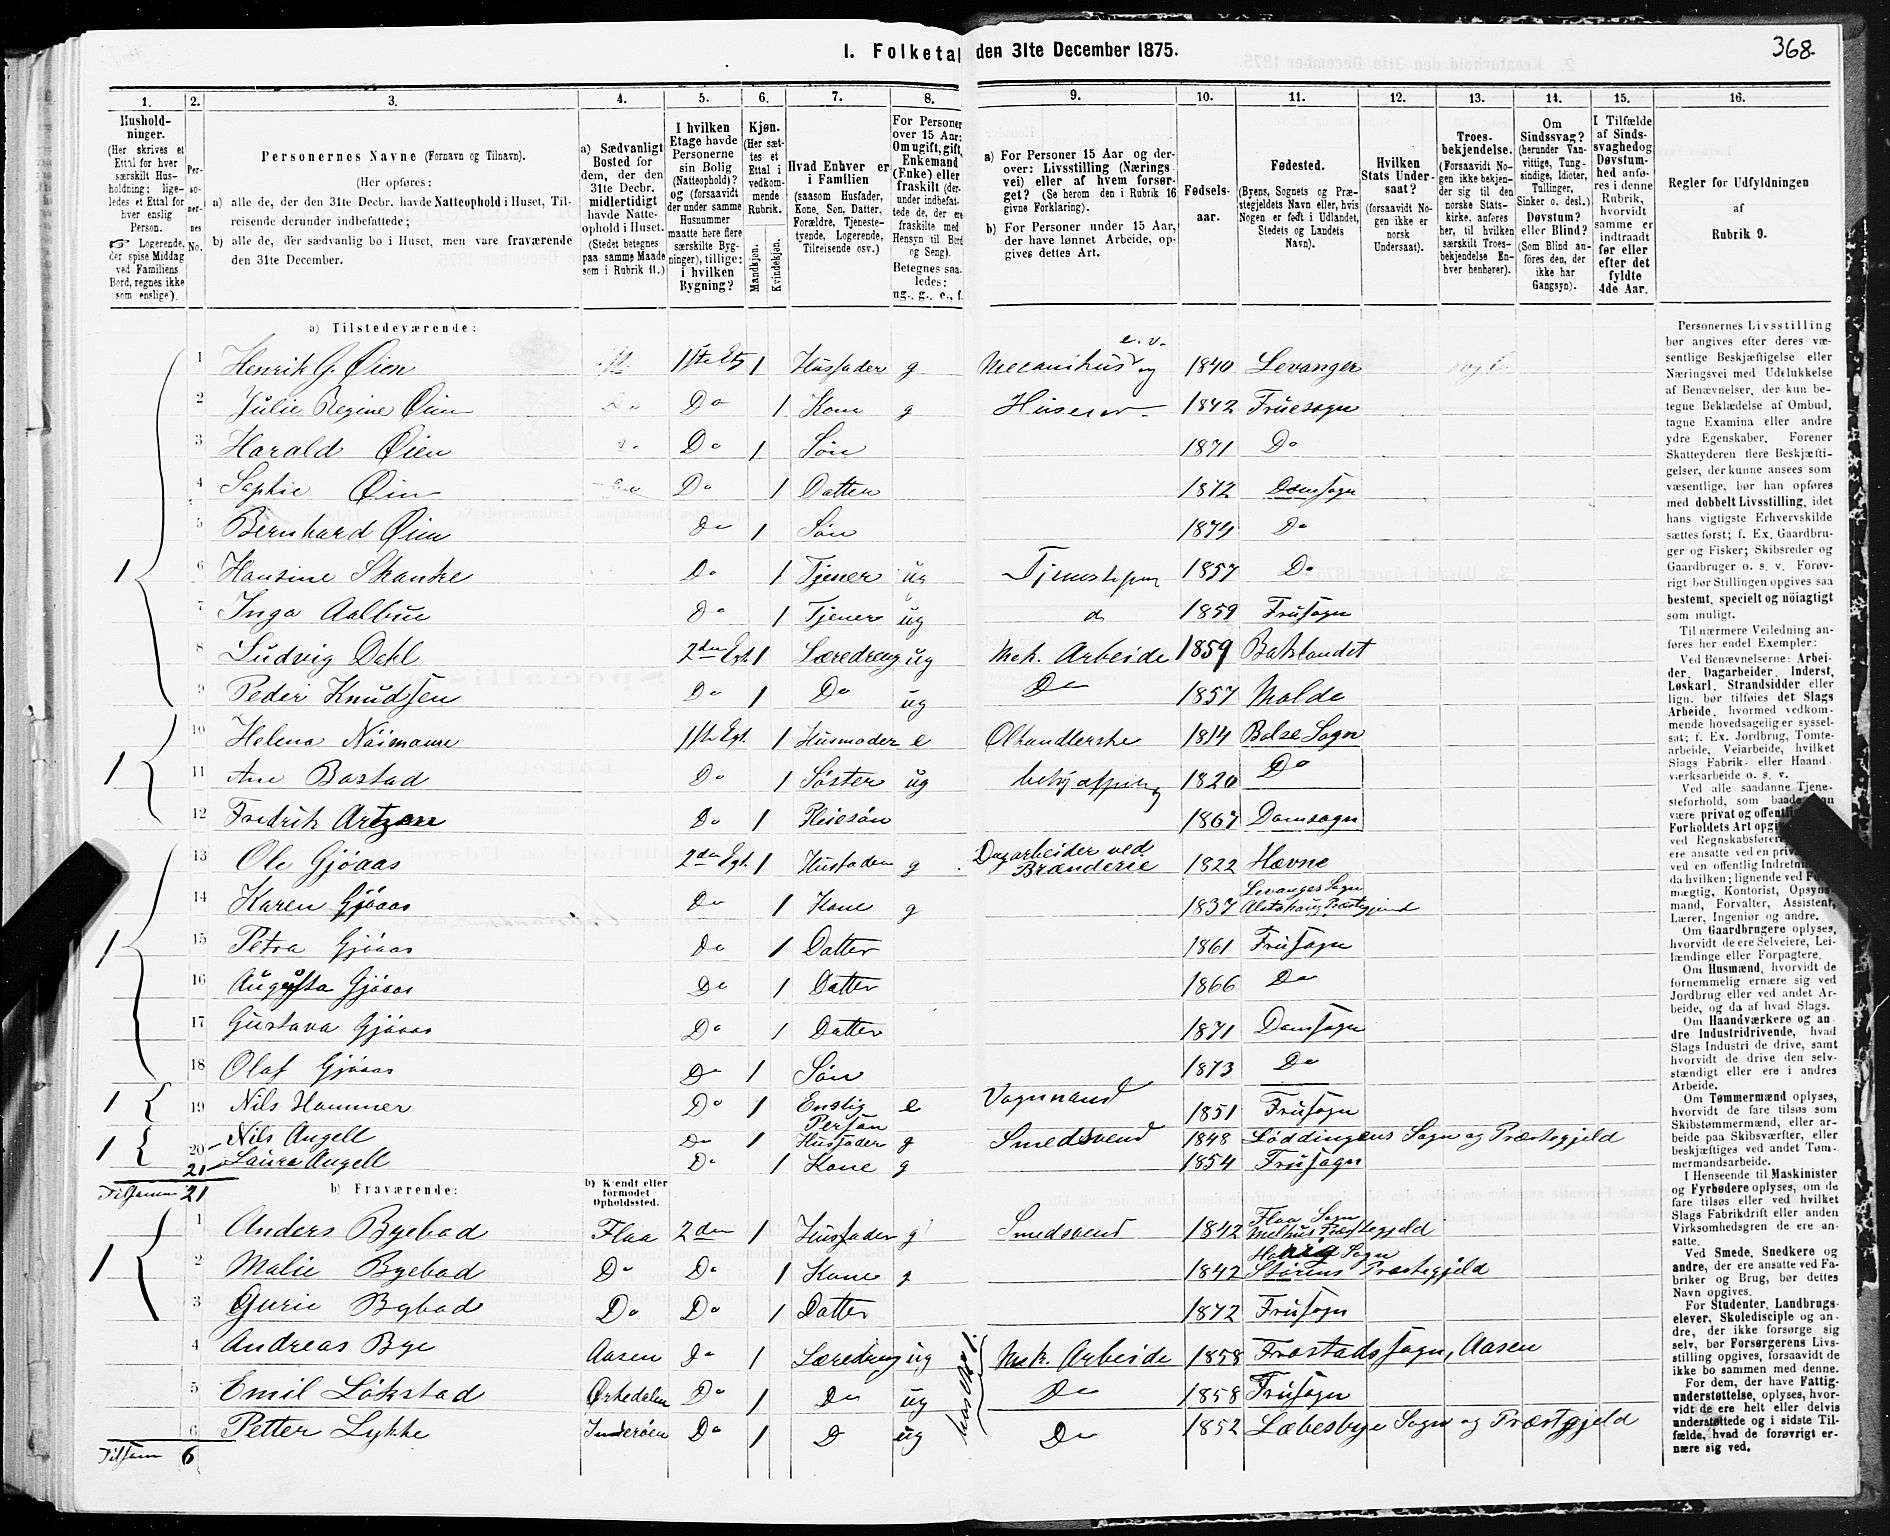 I. Folketal den 31te December 1875.
368.
1. 2. 3. 4. 5. 6. 7. 8. 9. 10. 11. 12. 13. 14. 15. 16.
Hushold-
ninger.
(Her skrives et
Ettal for hver
særskilt Hus-
holdning; lige-
ledes et Ettal for
hver enslig
Person.
☞ Logerende,
der spise Middag
ved Familiens
Bord, regnes ikke
som enslige).
Per-
so-
ner-
nes
No.
Personernes Navne (Fornavn og Tilnavn).
(Her opføres:
a) alle de, der den 31te Decbr. havde Natteophold i Huset, Til-
reisende derunder indbefattede;
b) alle de, der sædvanlig bo i Huset, men vare fraværende
den 31te December.
a) Sædvanligt
Bosted for
dem, der den
31te Decbr.
midlertidigt
havde Natte-
ophold i Huset.
(Stedet betegnes
paa samme Maade
som i Rubrik 11.)
I hvilken
Etage havde
Personerne
sin Bolig
(Natteophold)?
og (forsaavidt
der under samme
Husnummer
maatte høre flere
særskilte Byg-
ninger), tillige:
i hvilken
Bygning?
Kjøn.
(Her sæt-
tes et
Ettal i
vedkom-
mende
Rubrik.
Mandkjøn.
Kvindekjøn.
Hvad Enhver er
i Familien
(saasom Husfader,
Kone, Søn, Datter,
Forældre, Tjeneste-
tyende, Logerende,
Tilreisende osv.)
For Personer
over 15 Aar:
Om ugift, gift,
Enkemand
(Enke) eller
fraskilt (der-
under indbefat-
tede de, der ere
fraskilte med
Hensyn til Bord
og Seng).
Betegnes saa-
ledes:
ug., g., e., f.
a) For Personer 15 Aar og der-
over: Livsstilling (Nærings-
vei) eller af hvem forsør-
get? (Se herom den i Rubrik 16
givne Forklaring).
b) For Personer under 15 Aar,
der have lønnet Arbeide, op-
gives dettes Art.
Fødsels-
aar.
Fødested.
(Byens, Sognets og Præ-
stegjeldets Navn eller, hvis
Nogen er født i Udlandet,
Stedets og Landets
Navn).
Hvilken
Stats Under-
saat?
(forsaavidt No-
gen ikke er
norsk
Undersaat).
Troes-
bekjendelse.
(Forsaavidt No-
gen ikke bekjen-
der sig til den
norske Stats-
kirke, anføres
her, til hvilken
særskilt Troes-
bekjendelse En-
hver henhører).
Om
Sindssvag?
(herunder Van-
vittige, Tung-
sindige, Idioter,
Tullinger,
Sinker o. desl.)
Døvstum?
eller Blind?
(Som Blind an-
føres den, der
ikke har
Gangsyn).
I Tilfælde
af Sinds-
svaghed og
Døvstum-
hed anfø-
res i denne
Rubrik,
hvorvidt
samme er
indtraadt
før eller
efter det
fyldte
4de Aar.
Regler for Udfyldningen
af
Rubrik 9.
a) Tilstedeværende:
1 Henrik G. Øien 1ste Etg 1 Husfader g Mecanikus og e. v. 1840 Levanger
2 Julie Regine Øien Do Do 1 Kone g Huseier 1842 Fruesogn
3 Harald Øien Do 1 Søn 1871 Do
4 Sophie Øien Do Do 1 Datter 1872 Domsogn
5 Bernhard Øien Do 1 Søn 1874 Do
1 6 Hansine Skanke Do 1 Tjener ug 1857 Do
7 Inga Aalbue Do 1 Tjener ug 1859 Frusogn
8 Ludvig Dahl 2den Egt. 1 Læredreng ug Mek. Arbeide 1859 Baklandet
9 Peder Knudsen Do 1 Do ug Do 1857 Molde
10 Helena Nöimann 1ste Egt. 1 Husmoder e Ølhandlerske 1814 Balse Sogn
1 11 Ane Bastad Do 1 Søster ug 1820 Do
12 Fredrik Do 1 Pleiesøn 1867 Domsogn
13 Ole Gjöaas 2den Egt. 1 Husfader g Dagarbeider ved Brænderie 1822 Hævne
14 Karen Gjöaas Do 1 Kone g 1837 Levanger Sogn Alstahaug Præstegjeld
1 15 Petra Gjöaas Do 1 Datter 1861 Frusogn
16 Augusta Gjöaas Do 1 Datter 1866 Do
17 Gustava Gjöaas Do 1 Datter 1871 Domsogn
18 Olaf Gjöaas Do 1 Søn 1873 Do
1 19 Nils Hammer Do 1 Enslig Person e Vognmand 1851 Frusogn
1 20 Nils Angell Do 1 Husfader g Smedsvend 1848 Løddingens Sogn og Præstegjeld
21 Laura Angell Do 1 Kone g 1854 Frusogn
Tilsam 21
b) Fraværende:
b) Kjendt eller
formodet
Opholdssted.
1 Anders Byebad Flaa 2den 1 Husfader g Smedsvend 1842 Flaa Sogn Melhus Præstegjeld
1 2 Malie Byebad Do Do 1 Kone g 1842 Sogn Størens Præstegjeld
3 Gurie Bybad Do Do 1 Datter 1872 Frusogn
4 Andreas Bye Aasen Do 1 Læredreng ug Mek. Arbeide 1858 Frostads sogn, Aasen
5 Emil Lökstad Ørkedalen Do 1 Do ug Do 1858 Frusogn
6 Petter Lykke Inderøen Do 1 D ug Do 1852 Læbesbye Sogn og Præstgjeld
Tilsam 6
Personernes Livsstilling
bør angives efter deres væ-
sentlige Beskjæftigelse eller
Næringsvei med Udelukkelse
af Benævnelser, der kun be-
tegne Beklædelse af Ombud,
tagne Examina eller andre
ydre Egenskaber. Forener
Skatteyderen flere Beskjæfti-
gelser, der kunne ansees som
væsentlige, bør han opføres
med dobbelt Livsstilling, idet
hans vigtigste Erhvervskilde
sættes først; f. Ex. Gaardbru-
ger og Fisker; Skibsreder og
Gaardbruger o. s. v. Forøv-
rigt bør Stillingen opgives saa
bestemt, specielt og nöiagtigt
som muligt.
Til nærmere Veiledning an-
føres her endel Exempler:
Ved Benævnelserne: Arbei-
der, Dagarbeider, Inderst,
Løskarl, Strandsidder eller
lign. bør tilføies det Slags
Arbeide, hvormed vedkom-
mende hovedsagelig er syssel-
sat; f. Ex. Jordbrug, Tomte-
arbeide, Veiarbeide, hvilket
Slags Fabrik- eller Haand-
værksarbeide o. s. v.
Ved alle saadanne Tjene-
steforhold, som baade kan
være privat og offentlig
Forholdets Art
ved Regnskabsførere
ere ansatte ved en
ved en offentlig Indretning
da hvilken; lignende ved
mægtig, Kontorist, Opsyns-
mand, Forvalter, Assistent,
Lærer, Ingeniør og andre.
Om Gaardbrugere oplyses,
hvorvidt de ere Selveiere, Lei-
lændinge eller Forpagtere.
Om Husmænd, hvorvidt de
fornemmelig ernære sig ved
Jordbrug eller ved andet Ar-
beide, og da af hvad Slags.
Om Haandværkere og an-
dre Industridrivende, hvad
Slags Industri de drive, samt
hvorvidt de drive den selv-
stændigt eller ere i andres
Arbeide.
Om Tømmermænd oplyses,
hvorvidt de fare tilsøs som
Skibstømmermænd, eller ar-
beide paa Skibsværfter, eller
beskjæftiges ved andet Tøm-
mermandsarbeide.
I Henseende til Maskinister
og Fyrbødere oplyses, om de
fare tilsøs eller ved hvilket
Slags Fabrikdrift eller anden
Virksomhedsgren de ere an-
satte.
Ved Smede, Snedkere og
andre, der ere ansatte ved Fa-
briker og Brug, bør dettes
Navn opgives.
For Studenter, Landbrugs-
elever, Skoledisciple og an-
dre, der ikke forsørge sig
selv, bør Forsørgerens Livs-
stilling opgives, forsaavidt de
ikke bo sammen med denne.
For dem, der have Fattig-
understøttelse, oplyses, hvor-
vidt de ere helt eller delvis
understøttede og i sidste Til-
fælde, hvad de forøvrigt er-
nære sig ved.